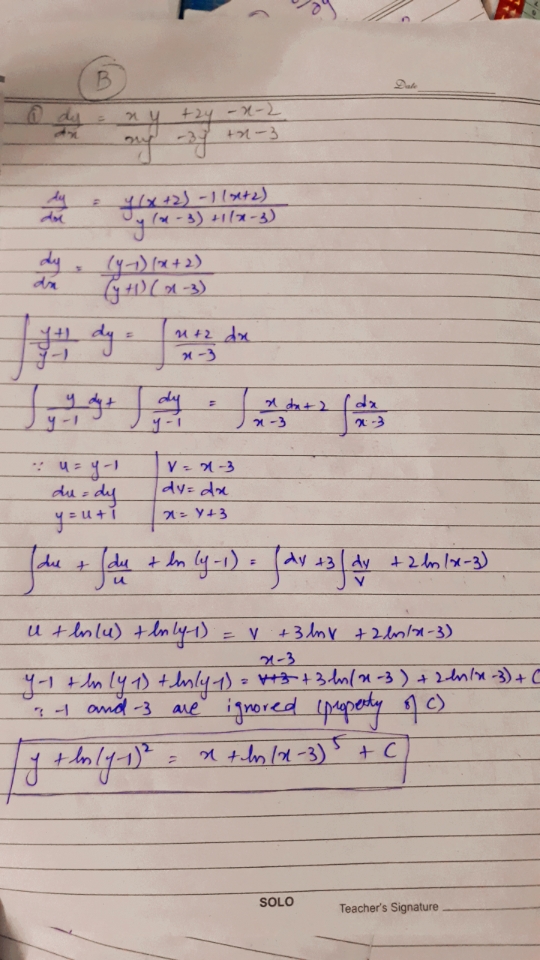 B
Date
① dy/dx = xy + 2y - x - 2 / xy - 3y + x - 3
dy/dx = y(x+2) - 1(x+2) / y(x-3) + 1(x-3)
dy/dx = (y-1)(x+2) / (y+1)(x-3)
∫ y+1/y-1 dy = ∫ x+2/x-3 dx
∫ y/y-1 dy + ∫ dy/y-1 = ∫ x/x-3 dx + 2 ∫ dx/x-3
∵ u = y-1 | v = x-3
du = dy | dv = dx
y = u+1 | x = v+3
∫du + ∫ du/u + ln(y-1) = ∫dv + 3∫ dv/v + 2ln(x-3)
u + ln(u) + ln(y-1) = v + 3lnv + 2ln(x-3)
x-3
y-1 + ln(y-1) + ln(y-1) = v+3 + 3ln(x-3) + 2ln(x-3) + C
∵ -1 and -3 are ignored (property of C)
y + ln(y-1)² = x + ln(x-3)⁵ + C
SOLO
Teacher's Signature